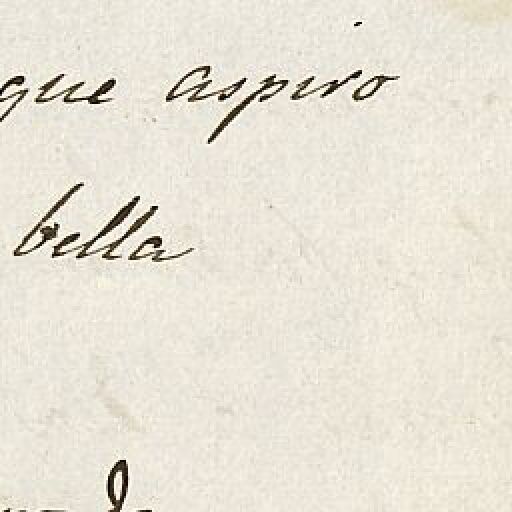 que aspiro
bella